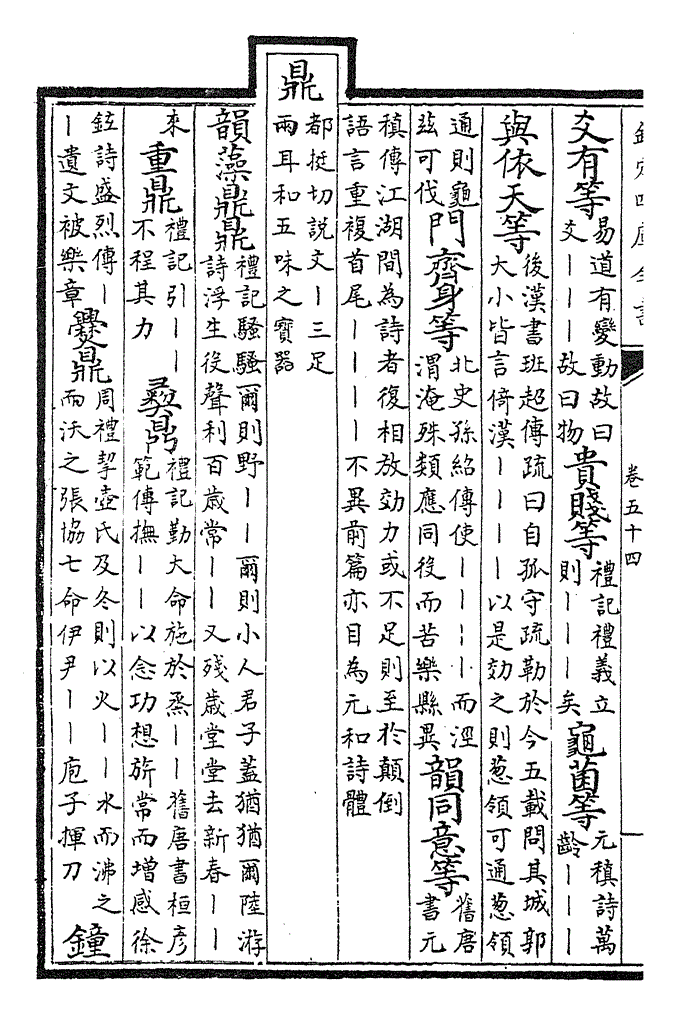 欽定四庫全書 卷五十四
爻有等 易道有變動故曰爻丨丨丨故曰物 貴賤等 禮記禮義立則丨丨丨矣 龜菌等 元稹詩萬齡丨丨丨
與依天等 後漢書班超傳疏曰自孤守疏勒於今五載問其城郭大小皆言倚漢丨丨丨丨以是効之則葱領可通葱領
通則龜兹可伐 門齊身等 北史孫紹傳使丨丨丨丨而涇渭淹殊類應同役而苦樂縣異 韻同意等 舊唐書元
稹傳江湖間為詩者復相放効力或不足則至於顛倒語言重複首尾丨丨丨丨不異前篇亦目為元和詩體
鼎 都挺切説文丨三足兩耳和五味之寶器
韻藻鼎鼎 禮記騷騷爾則野丨丨爾則小人君子蓋猶猶爾陸游詩浮生役聲利百歲常丨丨又殘歲堂堂去新春丨丨
來 重鼎 禮記引丨丨不程其力 彝鼎 禮記勤大命施於烝丨丨舊唐書桓彦範傳撫丨丨以念功想旂常而增感徐
鉉詩盛烈傳丨丨遺文被樂章 爨鼎 周禮挈壺氏及冬則以火丨丨水而沸之而沃之張協七命伊尹丨丨庖子揮刀 鐘